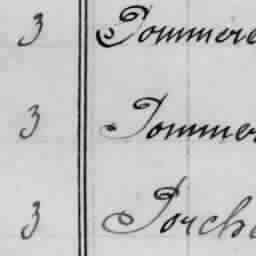 3 Pommere
3 Pommer
3 Porch